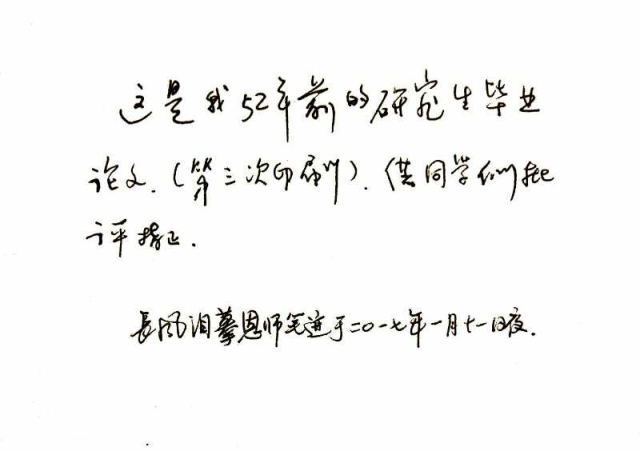 这是我52年前的研究生毕业
论文.（第三次印刷）.供同学们批
评指正.
長风泪摹恩师笔迹于二〇一七年一月十一日夜.